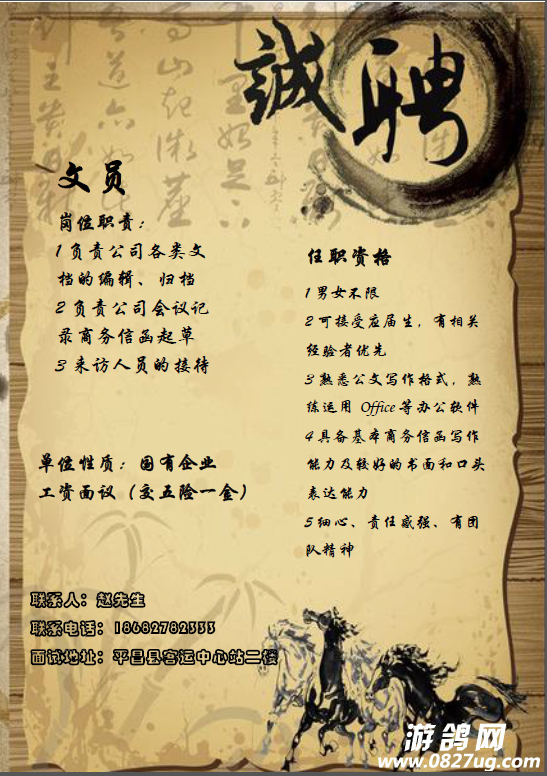 誠聘
文员
岗位职责：
1 负责公司各类文
档的编辑、归档
2 负责公司会议记
录商务信函起草
3 来访人员的接待
单位性质：国有企业
工资面议（交五险一金）
任职资格
1 男女不限
2 可接受应届生，有相关
经验者优先
3 熟悉公文写作格式，熟
练运用 Office 等办公软件
4 具备基本商务信函写作
能力及较好的书面和口头
表达能力
5 细心、责任感强、有团
队精神
联系人：赵先生
联系电话：18682782333
面试地址：平昌县客运中心站二楼
游鸽网
www.0827ug.com